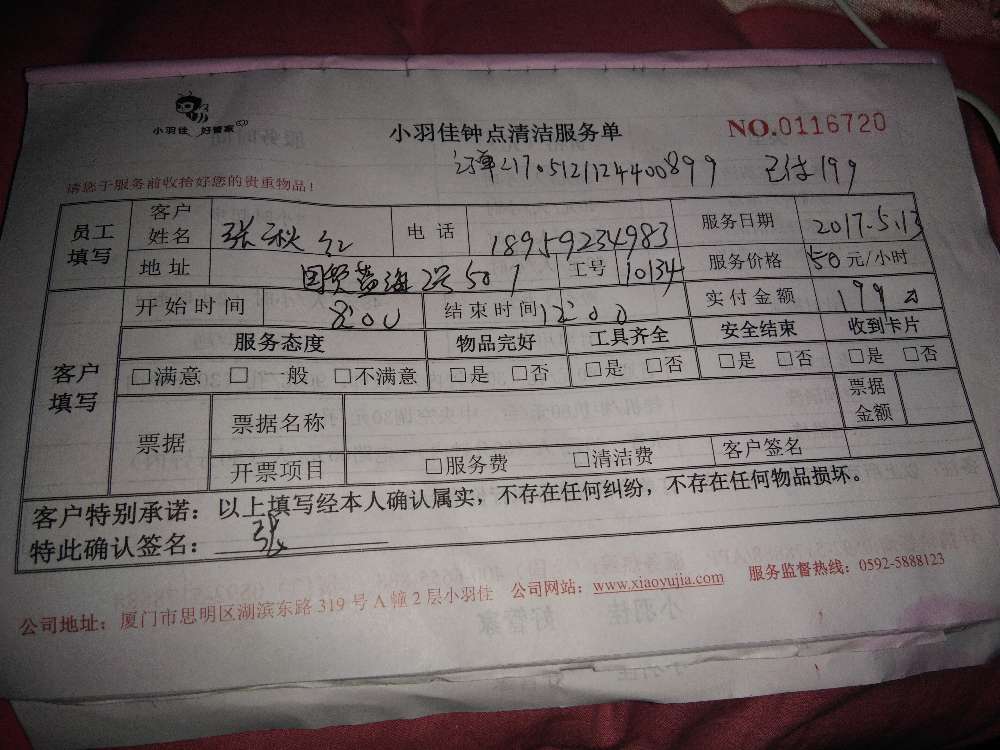 小羽佳 好管家
小羽佳钟点清洁服务单
NO.0116720
订单217051211244400899 已付199
请您于服务前收拾好您的贵重物品！
员工填写 客户姓名 张秋红 电话 18959234983 服务日期 2017.5.13
地址 国贸蓝海2号501 工号 10134 服务价格 50元/小时
客户填写 开始时间 8:00 结束时间 12:00 实付金额 199
服务态度 物品完好 工具齐全 安全结束 收到卡片
□满意 □一般 □不满意 □是 □否 □是 □否 □是 □否 □是 □否
票据 票据名称 票据金额
开票项目 □服务费 □清洁费 客户签名
客户特别承诺：以上填写经本人确认属实，不存在任何纠纷，不存在任何物品损坏。
特此确认签名：张
公司地址：厦门市思明区湖滨东路319号A幢2层小羽佳 公司网站：www.xiaoyujia.com 服务监督热线：0592-5888123